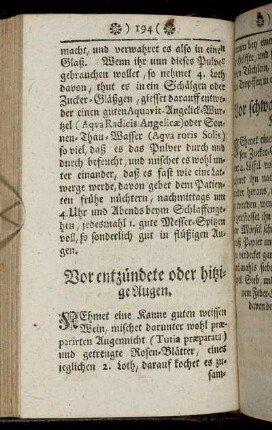 ) 194 (
macht, und verwahret es also in einem
Glaß. Wenn ihr nun dieses Pulver
gebrauchen wollet, so nehmet 4. Loth
davon, thut es in ein Schälgen oder
Zucker-Gläßgen, giesset darauff entwe-
der einen guten Aquavit-Angelick-Wur-
tzel (Aqva Radicis Angelicæ) oder Son-
nen-Thau-Wasser (Aqva rotis Solis)
so viel, daß es das Pulver durch und
durch befeucht, und mischet es wohl un-
ter einander, daß es fast wie eine Lat-
werge werde, davon gebet dem Patien-
ten frühe nüchtern, nachmittags um
4. Uhr und Abends beym Schlaffenge-
hen, jedesmahl 1. gute Messer-Spitzen
voll, so sonderlich gut in flüßigen Au-
gen.
Vor entzündete oder hitzi-
ge Augen.
NEhmet eine Kanne guten weissen
Wein, mischet darunter wohl præ-
parirten Augennicht (Tutia præparata)
und getreugte Rosen-Blätter, eines
jeglichen 2. Loth, darauf kochet es zu-
sam-